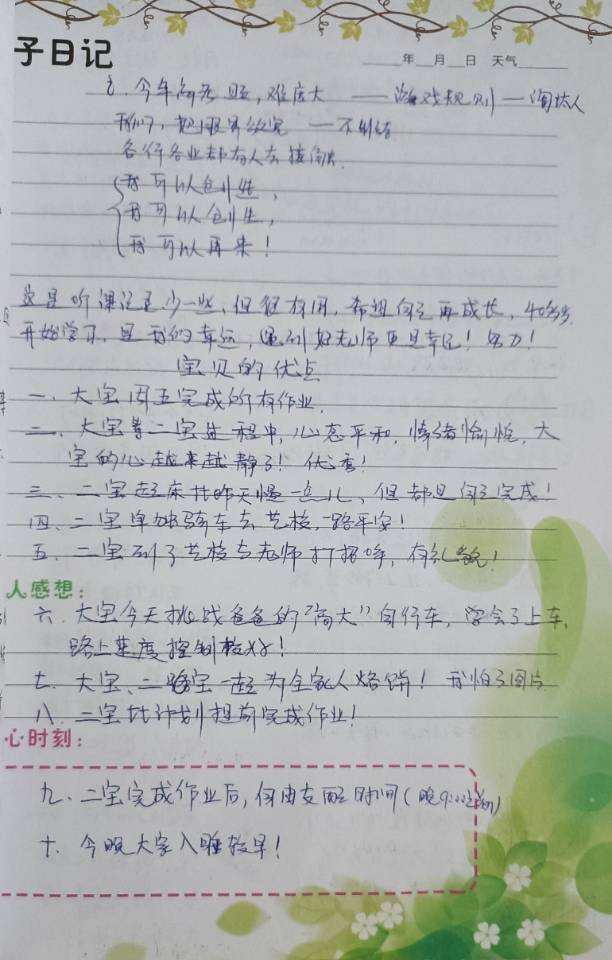 子日记
年 月 日 天气
今年高考 难度大 —— 游戏规则 — 淘汰人
我们
各行各业都有人去接
我可以创业,
我可以创生,
我可以再来!
听课 少一些,但很有用,希望自己再成长,40多岁
开始学习,是我们的幸运,遇到好老师更是幸运!努力!
宝贝的优点
一、大宝周五完成所有作业.
二、大宝等二宝过程中,心态平和,情绪愉悦,大
宝的心越来越静了!优秀!
三、二宝起床比昨天慢一点儿、但都是自己完成!
四、二宝单独骑车去艺校,一路平安!
五、二宝到了艺校与老师打招呼,有礼貌!
人感想:
六、大宝今天挑战爸爸的"高大"自行车,学会了上车,
路上速度控制较好!
七、大宝、二宝一起为全家人烙饼!我拍了图片
八、二宝比计划提前完成作业!
心时刻:
九、二宝完成作业后,自由支配时间(晚9:00之前)
十、今晚大宝入睡较早!